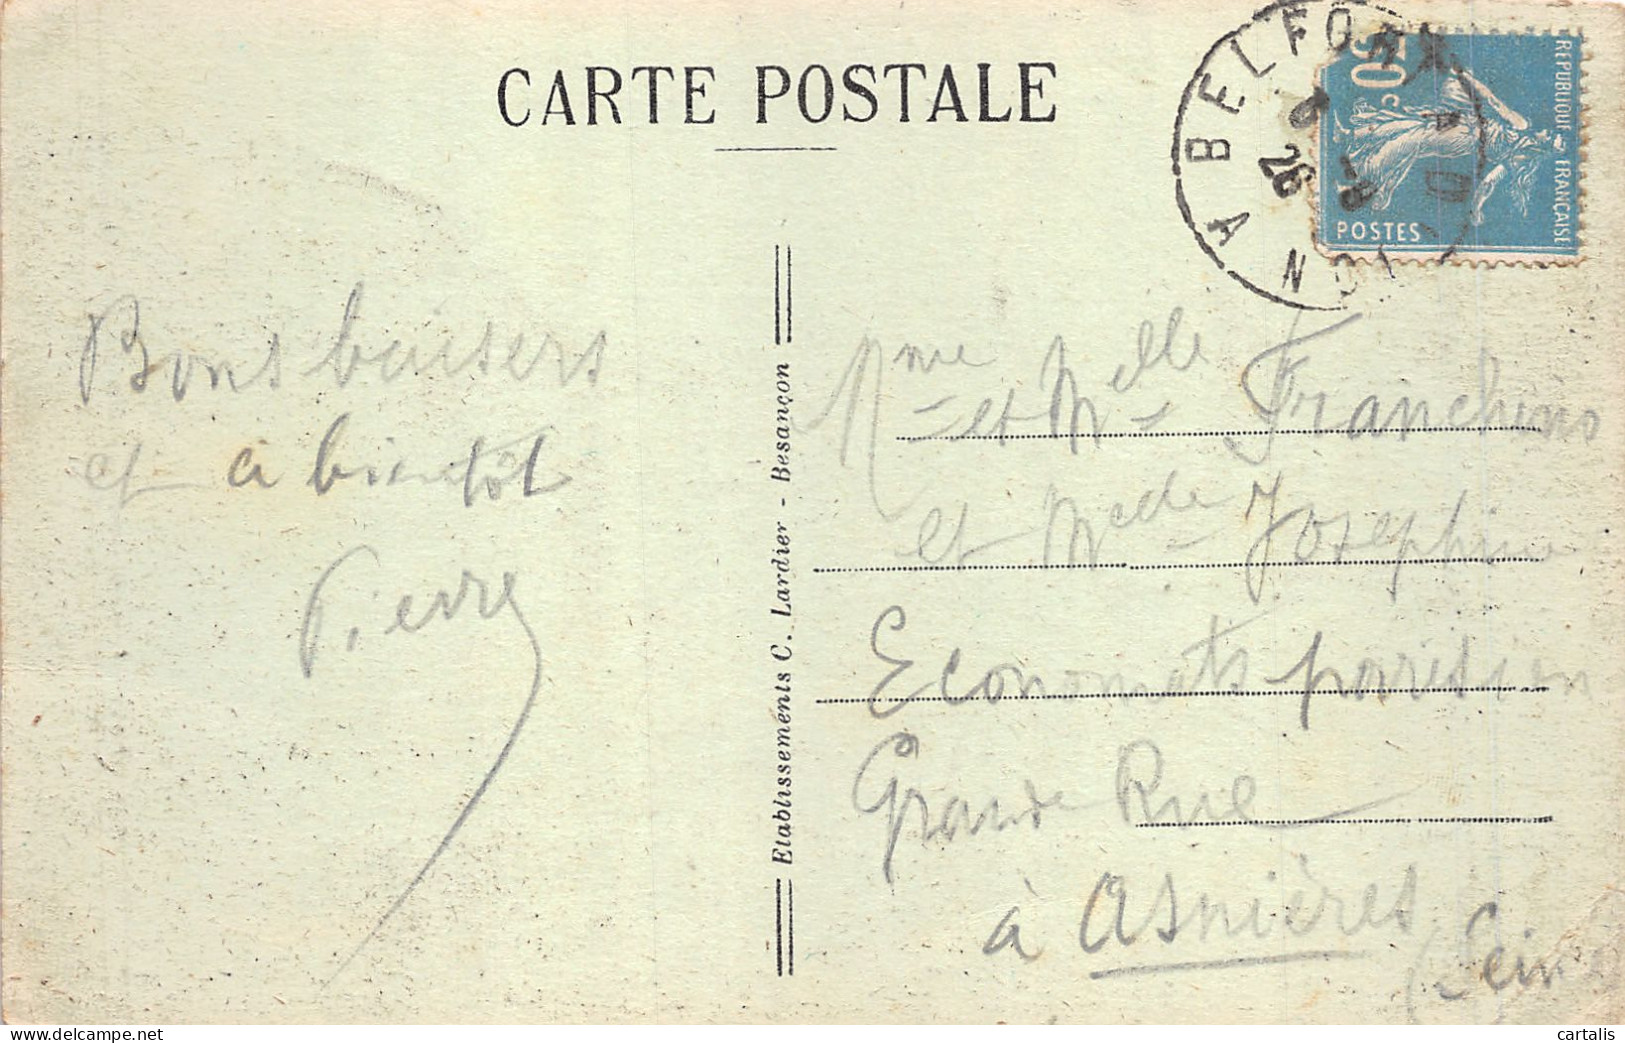 CARTE POSTALE
BELFORT A
6 -8
26
30 c
REPUBLIQUE FRANÇAISE
POSTES
Bons baisers
et à bientôt
Pierre
Etablissements C. Lardier - Besançon
Mme et Melle Franchino
et Mede Josephine
Economats parisien
Grande Rue
à Asnières
(Seine)
cartalis